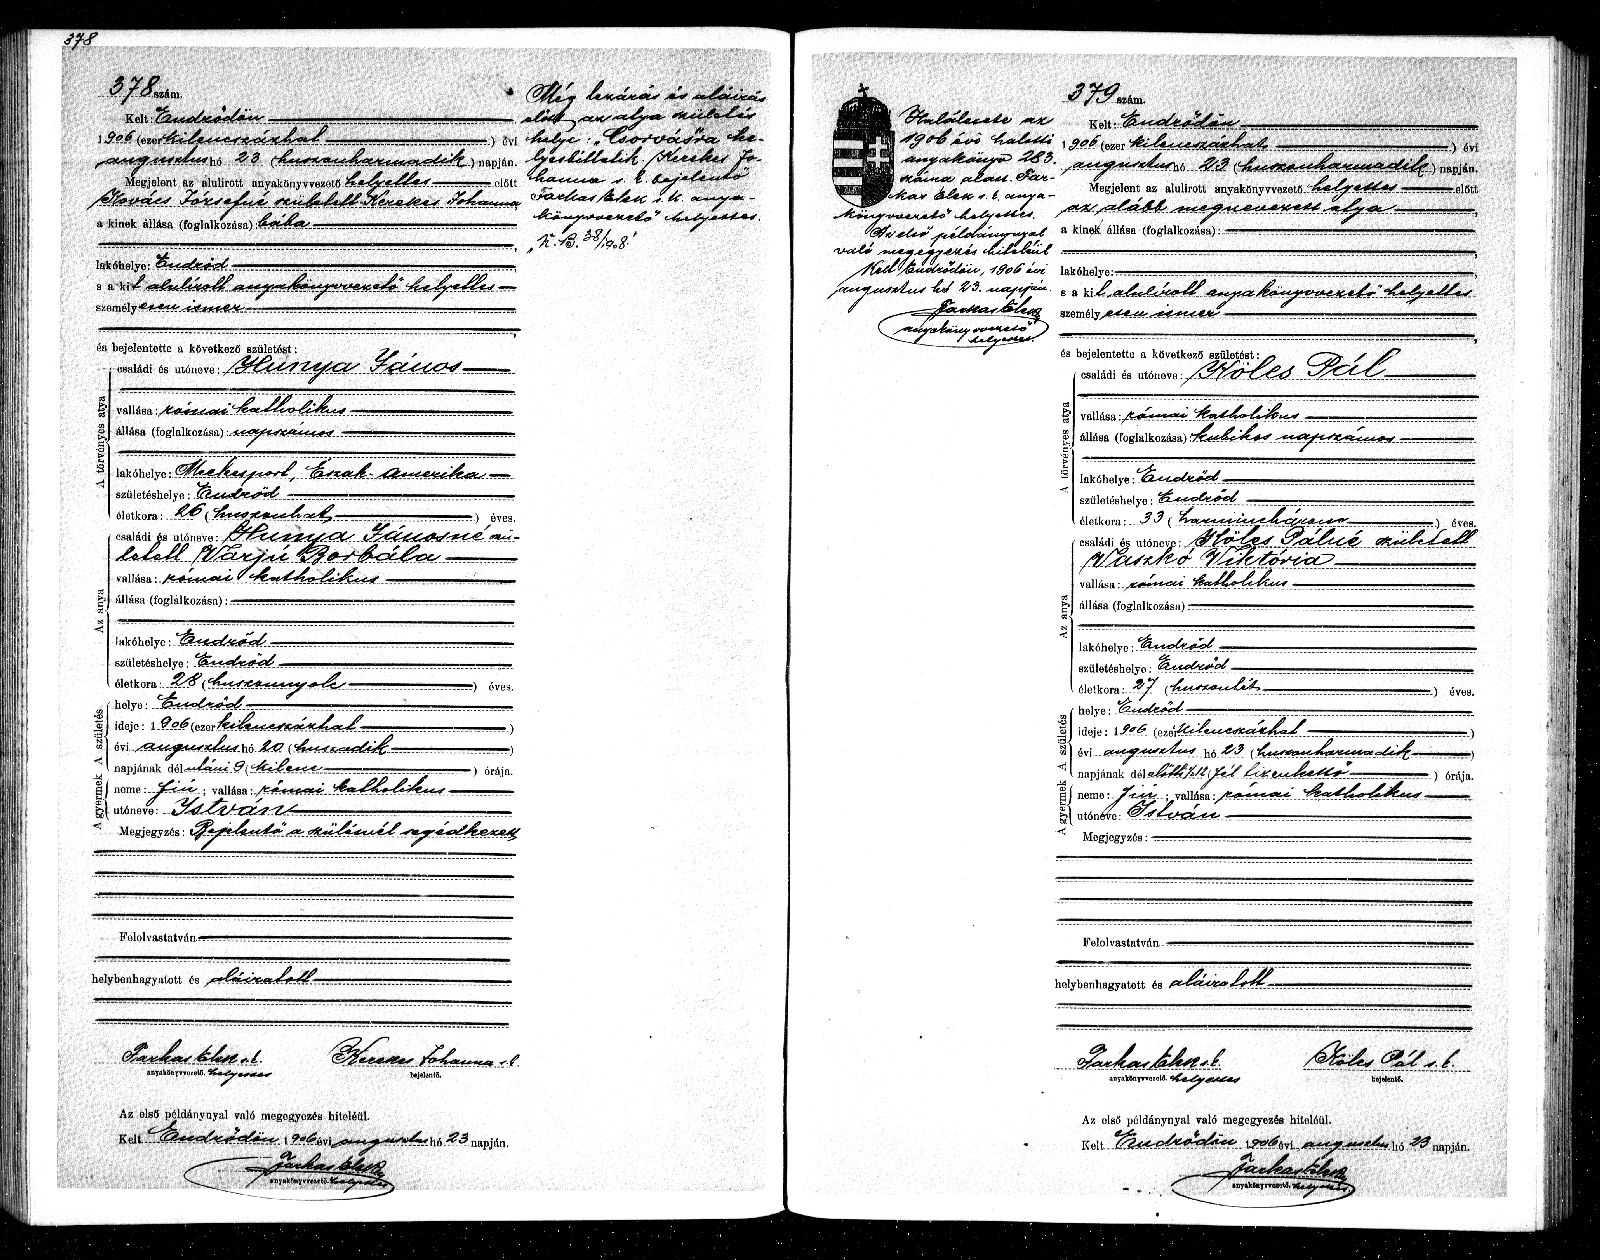 378
378 szám.
Kelt: Endrődön
1906 (ezer kilencszázhat) évi
augusztus hó 23 (huszonharmadik) napján.
Megjelent az alulirott anyakönyvvezető helyettes előtt
Kovács Józsefné született Kerekes Johanna
a kinek állása (foglalkozása) bába
lakóhelye: Endrőd
s a kit alulírott anyakönyvvezető helyettes
személyesen ismer
és bejelentette a következő születést:
A törvényes atya
családi és utóneve: Hunya János
vallása: római katholikus
állása (foglalkozása): napszámos
lakóhelye: Mckesport, Észak-Amerika
születéshelye: Endrőd
életkora: 26 (huszonhat) éves.
Az anya
családi és utóneve: Hunya Jánosné szü-
letett Varjú Borbála
vallása: római katholikus
állása (foglalkozása):
lakóhelye: Endrőd
születéshelye: Endrőd
életkora: 28 (huszonnyolc) éves.
A születés
helye: Endrőd
ideje: 1906 (ezer kilencszázhat)
évi augusztus hó 20 (huszadik)
napjának délutáni 9 (kilenc) órája.
A gyermek
neme: fiú; vallása: római katholikus
utóneve: István
Megjegyzés: Bejelentő a szülésnél segédkezett
Felolvastatván
helybenhagyatott és aláiratott
Farkas Elek s.k. Kerekes Johanna s.k.
anyakönyvvezető. helyettes bejelentő.
Az első példánynyal való megegyezés hiteléül.
Kelt Endrődön 1906 évi augusztus hó 23 napján.
Farkas Elek
anyakönyvvezető. helyettes
Még lezárás és aláirás
előtt az atya születés
helye „Csorvás"ra he-
lyesbíttetik. Kerekes Jo-
hanna s.k. bejelentő
Farkas Elek s.k. anya-
könyvvezető helyettes.
„K. B. 38/1908."
Halálesete az
1906 évi halotti
anyakönyv 283.
száma alatt. Far-
kas Elek s.k. anya-
könyvvezető helyettes.
Az első példánynyal
való megegyezés hiteléül
Kelt Endrődön, 1906 évi
augusztus hó 23. napján.
Farkas Elek
anyakönyvvezető
helyettes.
379 szám.
Kelt: Endrődön
1906 (ezer kilencszázhat) évi
augusztus hó 23 (huszonharmadik) napján.
Megjelent az alulirott anyakönyvvezető helyettes előtt
az alább megnevezett atya
a kinek állása (foglalkozása):
lakóhelye:
s a kit alulírott anyakönyvvezető helyettes
személyesen ismer
és bejelentette a következő születést:
A törvényes atya
családi és utóneve: Köles Pál
vallása: római katholikus
állása (foglalkozása): kubikos napszámos
lakóhelye: Endrőd
születéshelye: Endrőd
életkora: 33 (harminchárom) éves.
Az anya
családi és utóneve: Köles Pálné született
Vaszkó Viktória
vallása: római katholikus
állása (foglalkozása)
lakóhelye: Endrőd
születéshelye: Endrőd
életkora: 27 (huszonhét) éves.
A születés
helye: Endrőd
ideje: 1906 (ezer kilencszázhat)
évi augusztus hó 23 (huszonharmadik)
napjának délelőtti ½12 (fél tizenkettő) órája.
A gyermek
neme: fiú; vallása: római katholikus
utóneve: István
Megjegyzés:
Felolvastatván
helybenhagyatott és aláiratott
Farkas Elek s.k. Köles Pál s.k.
anyakönyvvezető. helyettes bejelentő.
Az első példánynyal való megegyezés hiteléül.
Kelt Endrődön 1906 évi augusztus hó 23 napján.
Farkas Elek
anyakönyvvezető. helyettes